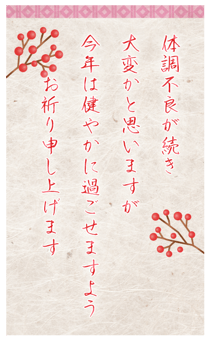 体調不良が続き
大変かと思いますが
今年は健やかに過ごせますよう
お祈り申し上げます